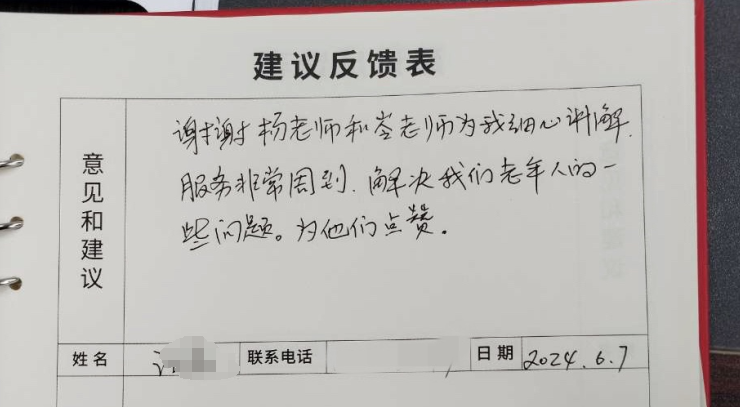 建议反馈表
意见和建议
谢谢杨老师和岑老师为我细心讲解.
服务非常周到.解决我们老年人的一
些问题。为他们点赞.
姓名
联系电话
日期 2024.6.7